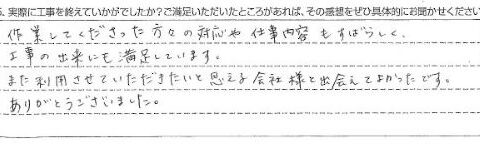 5. 実際に工事を終えていかがでしたか?ご満足いただいたところがあれば、その感想をぜひ具体的にお聞かせください
作業してくださった方々の対応や仕事内容もすばらしく、
工事の出来にも満足しています。
また利用させていただきたいと思える会社様と出会えてよかったです。
ありがとうございました。